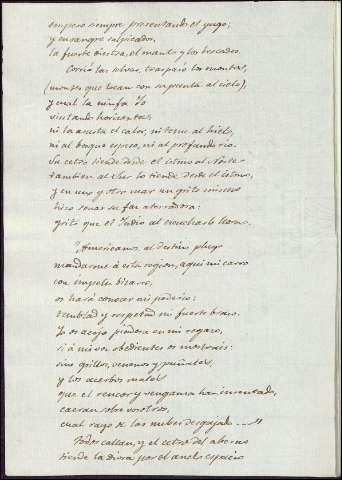 empero siempre presentando el yugo;
y en sangre salpicados,
la fuerte diestra, el manto y los bocados.
Corrió las selvas, traspasó los montes,
(montes que tocan con su frente al cielo),
y cual la ninfa Yo
visitando horizontes,
ni la asusta el calor, ni teme al hielo,
ni al bosque espeso, ni al profundo rio.
Su cetro tiende desde el istmo al Norte
tambien al Sur lo tiende desde el istmo,
y en uno y otro mar un grito mismo
hizo sonar su faz aterradora:
grito que el Indio al escucharle llora.
"Americanos, al destino plugo
mandarme á esta region, aqui mi carro
con impetu bizarro,
os hará conocer mi poderio:
temblad y respetad mi fuerte brazo.
Yo os acojo piadosa en mi regazo,
si á mi voz obedientes os mostrais:
sino grillos, venenos y puñales,
y los acerbos males
que el rencor y venganza han inventado,
caeran sobre vosotros,
cual rayo de las nubes desgajado ...."
Todos callan, y el cetro del aborno
tiende la diosa por el ancho espacio